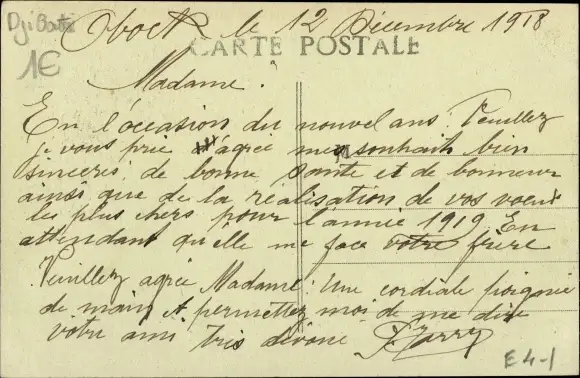 Djibouti
1€
Obock le 12 Décembre 1918
CARTE POSTALE
Madame.
En l'occasion du nouvel ans. Veuillez
je vous prie d'agrée mes souhait bien
sincères de bonne santé et de bonneur
ainsi que de la réalisation de vos voeux
les plus chers pour l'année 1919 En
attendant qu'elle me face votre frère
Veuillez agrée Madame. Une cordiale poignie
de main et permettez moi de me dire
votre ami très dévoué
E4-1